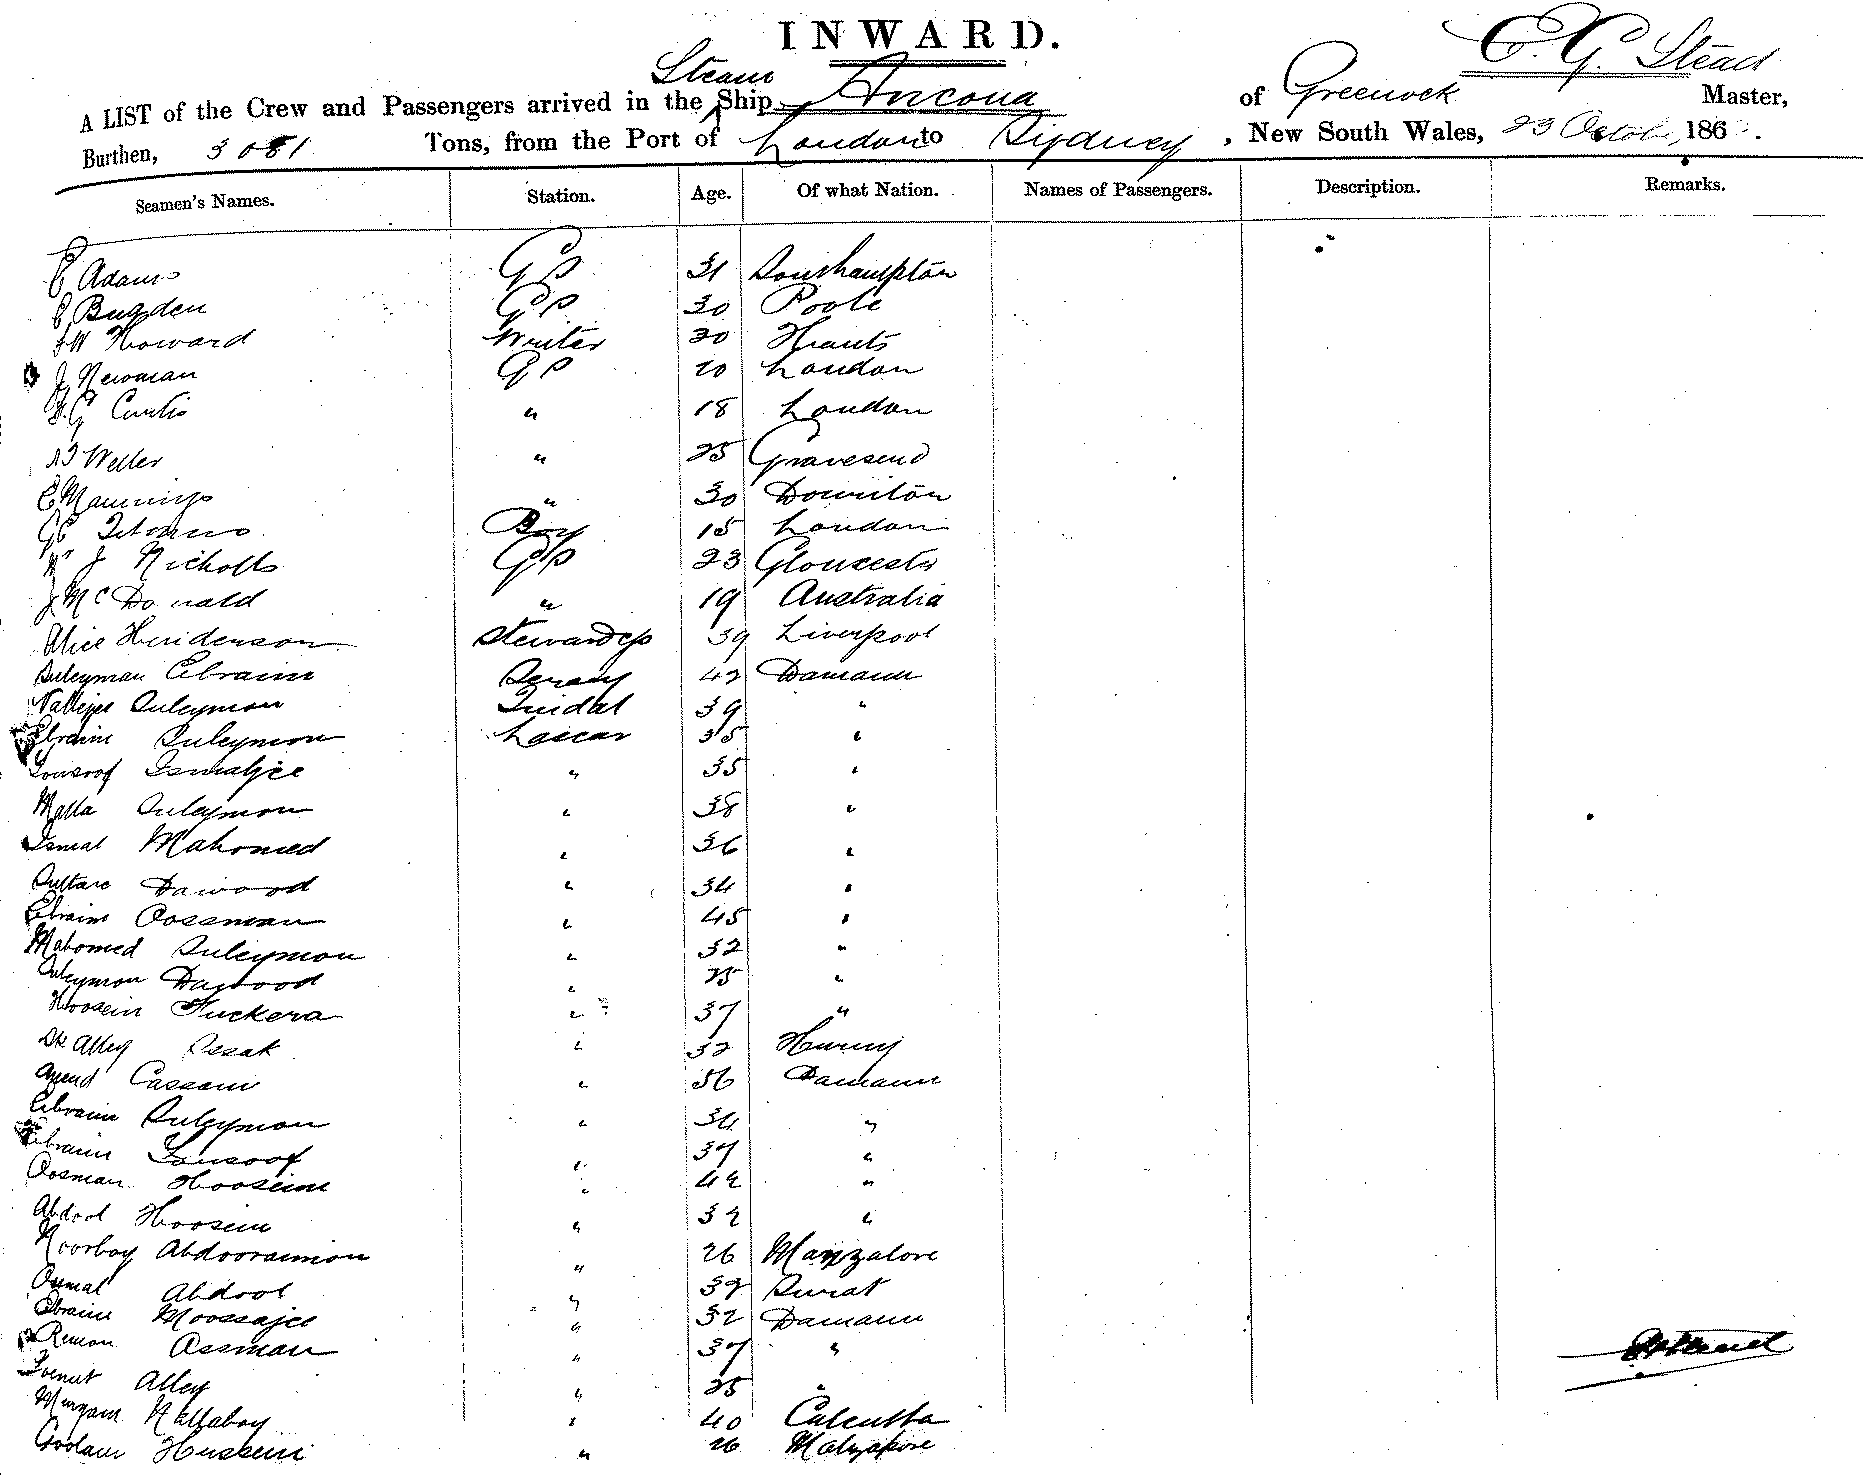 INWARD.
C. G. Stead
Steam
A LIST of the Crew and Passengers arrived in the Ship Ancona of Greenock Master,
Burthen, 3081 Tons, from the Port of London to Sydney, New South Wales, 23 Octob 186
Seamen's Names. Station. Age. Of what Nation. Names of Passengers. Description. Remarks.
E Adams GS 31 Southampton
E Bugden GS 30 Poole
Howard Writer 20 Hants
J Newman GS 20 London
G Curtis " 18 London
Weller " 25 Gravesend
E Mannings " 30 Downton
Boy 15 London
J Nicholls GS 23 Gloucester
J McDonald " 19 Australia
Alice Henderson Stewardess 39 Liverpool
Suleyman Ebraim Serang 42 Damaun
Suleymon Tindal 39 "
Ebraim Suleymon Lascar 35 "
Yousoof Ismaljee " 35 "
Malla Suleymon " 38 "
Ismal Mahomed " 36 "
Dawood " 34 "
Ebraim Oosman " 45 "
Mahomed Suleymon " 32 "
Suleymon Dawood " 25 "
Hoosein Fuckera " 37 "
Alley Essak " 32
Cassam " 36 Damaun
Ebraim Suleymon " 34 "
Ebraim Yousoof " 37 "
Oosman Hoosein " 42 "
Abdool Hoosein " 32 "
Noorboy Abdooraimon " 26 Mangalore
Abdool " 32 Surat
Ebraim Moossajee " 32 Damaun
Remon Assman " 37 "
Alley " 25 "
Nallaboy " 40 Calcutta
Goolam Hussein " 26